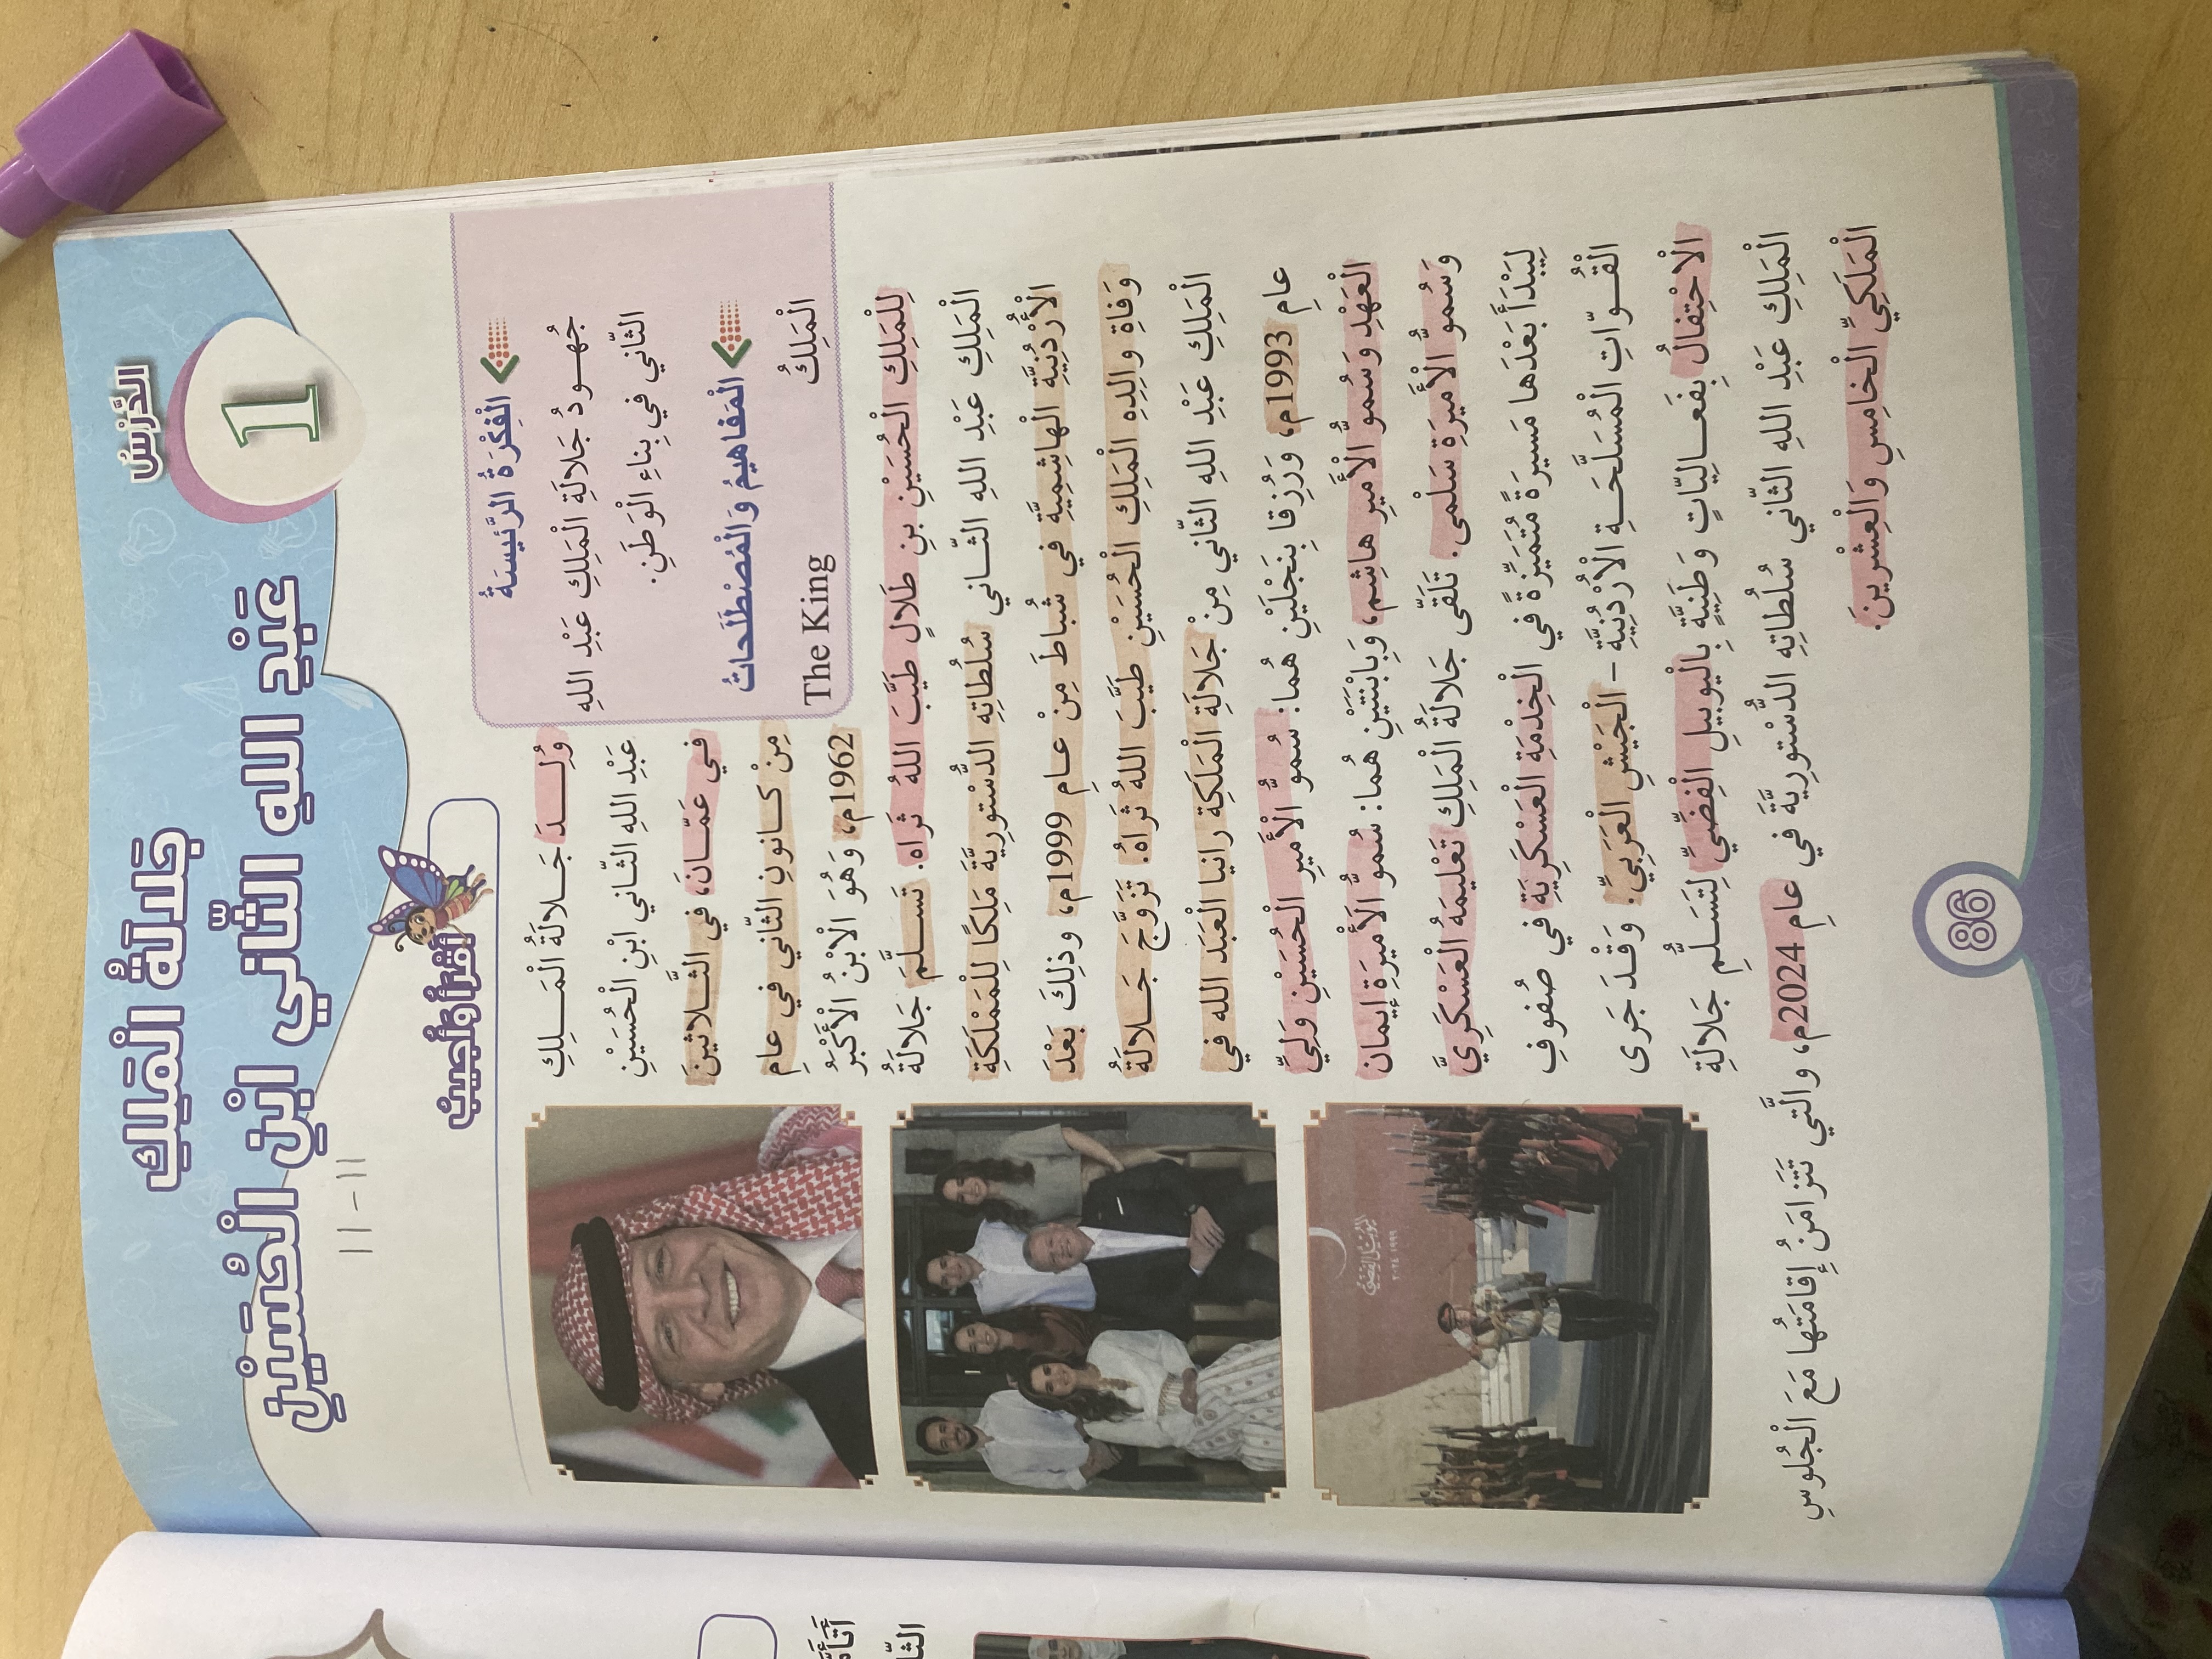 الدَّرْسُ
1
جَلالَةُ الْمَلِكِ
عَبْدِ اللهِ الثّاني ابْنِ الْحُسَيْنِ
١١-١١
أَقْرَأُ وَأُجيبُ
الْفِكْرَةُ الرَّئيسَةُ
جُهـودُ جَلالَةِ الْمَلِكِ عَبْدِ اللهِ
الثّاني في بِناءِ الْوَطَنِ.
الْمَفاهيمُ وَالْمُصْطَلَحاتُ
الْمَلِكُ The King
وُلِـدَ جَـلالَةُ الْمَـلِكِ
عَبْدِ اللهِ الثّاني ابْنِ الْحُسَيْنِ
في عَمّـانَ، في الثَّـلاثينَ
مِنْ كـانونِ الثّاني في عامِ
1962م، وَهُوَ الْابْنُ الْأَكْبَرُ
لِلْمَلِكِ الْحُسَيْنِ بنِ طَلالٍ طَيَّبَ اللهُ ثَراه. تَسـلَّمَ جَلالَةُ
الْمَلِكِ عَبْدِ اللهِ الثّـاني سُلُطاتِهِ الدُّسْتورِيَّةَ مَلِكًا لِلْمَمْلَكَةِ
الْأُرْدُنِيَّةِ الْهاشِمِيَّةِ في شُباطَ مِنْ عـامِ 1999م، وذلِكَ بَعْدَ
وَفاةِ والِدِهِ الْمَلِكِ الْحُسَيْنِ طَيَّبَ اللهُ ثَراهُ. تَزَوَّجَ جَـلالَةُ
الْمَلِكِ عَبْدِ اللهِ الثّاني مِنْ جَلالَةِ الْمَلِكَة رانيا الْعَبَد الله في
عامِ 1993م، وَرُزِقا بِنَجْلَيْنِ هُما: سُموُّ الْأَميرِ الْحُسَيْنِ وَلِيِّ
الْعَهْدِ وَسُموُّ الْأَميرِ هاشِم، وَبِابْنَتَيْنِ هُما: سُموُّ الْأَميرَةِ إيمان
وَسُموُّ الْأَميرَةِ سَلْمى. تَلَقّى جَلالَةُ الْمَلِكِ تَعْليمَهُ الْعَسْكَرِيَّ
لِيَبْدَأَ بَعْدَها مَسيرَةً مُتَمَيِّزَةً في الْخِدْمَةِ الْعَسْكَرِيَّةِ في صُفوفِ
الْقُـوّاتِ الْمُسَلَّحَـةِ الْأُرْدُنِيَّة – الْجَيْشِ الْعَرَبِيِّ. وَقَـدْ جَرى
الْاحْتِفالُ بِفَعـالِيّاتٍ وَطَنِيَّةٍ بِالْيوبيلِ الْفِضِّيِّ لِتَسَـلُّمِ جَلالَةِ
الْمَلِكِ عَبْدِ اللهِ الثّاني سُلُطاتِهِ الدُّسْتورِيَّةَ في عامِ 2024م، والَّتي تَتَزامَنُ إقامَتُها مَعَ الْجُلوسِ
الْمَلَكِيِّ الْخامِسِ وَالْعِشْرينَ.
اليوبيل الفضي
١٩٩٩ ٢٠٢٤
86